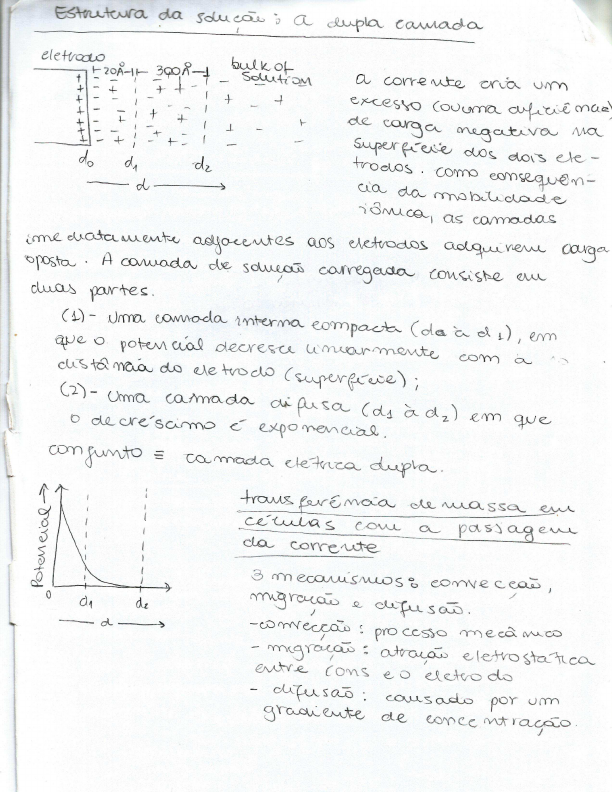 Estrutura da solução: A dupla camada
eletrodo
20Å
300Å
bulk of
solution
d0 d1 d2
d
a corrente cria um
excesso (ou uma deficiência)
de carga negativa na
superfície dos dois ele-
trodos. como consequên-
cia da mobilidade
iônica, as camadas
imediatamente adjacentes aos eletrodos adquirem carga
oposta. A camada de solução carregada consiste em
duas partes.
(1)- Uma camada interna compacta (d0 à d1), em
que o potencial decresce linearmente com a
distância do eletrodo (superfície);
(2)- Uma camada difusa (d1 à d2) em que
o decréscimo é exponencial.
conjunto ≡ camada elétrica dupla.
Potencial
0 d1 d2
d
transferência de massa em
células com a passagem
da corrente
3 mecanismos: convecção,
migração e difusão.
- convecção: processo mecânico
- migração: atração eletrostática
entre íons e o eletrodo
- difusão: causado por um
gradiente de concentração.